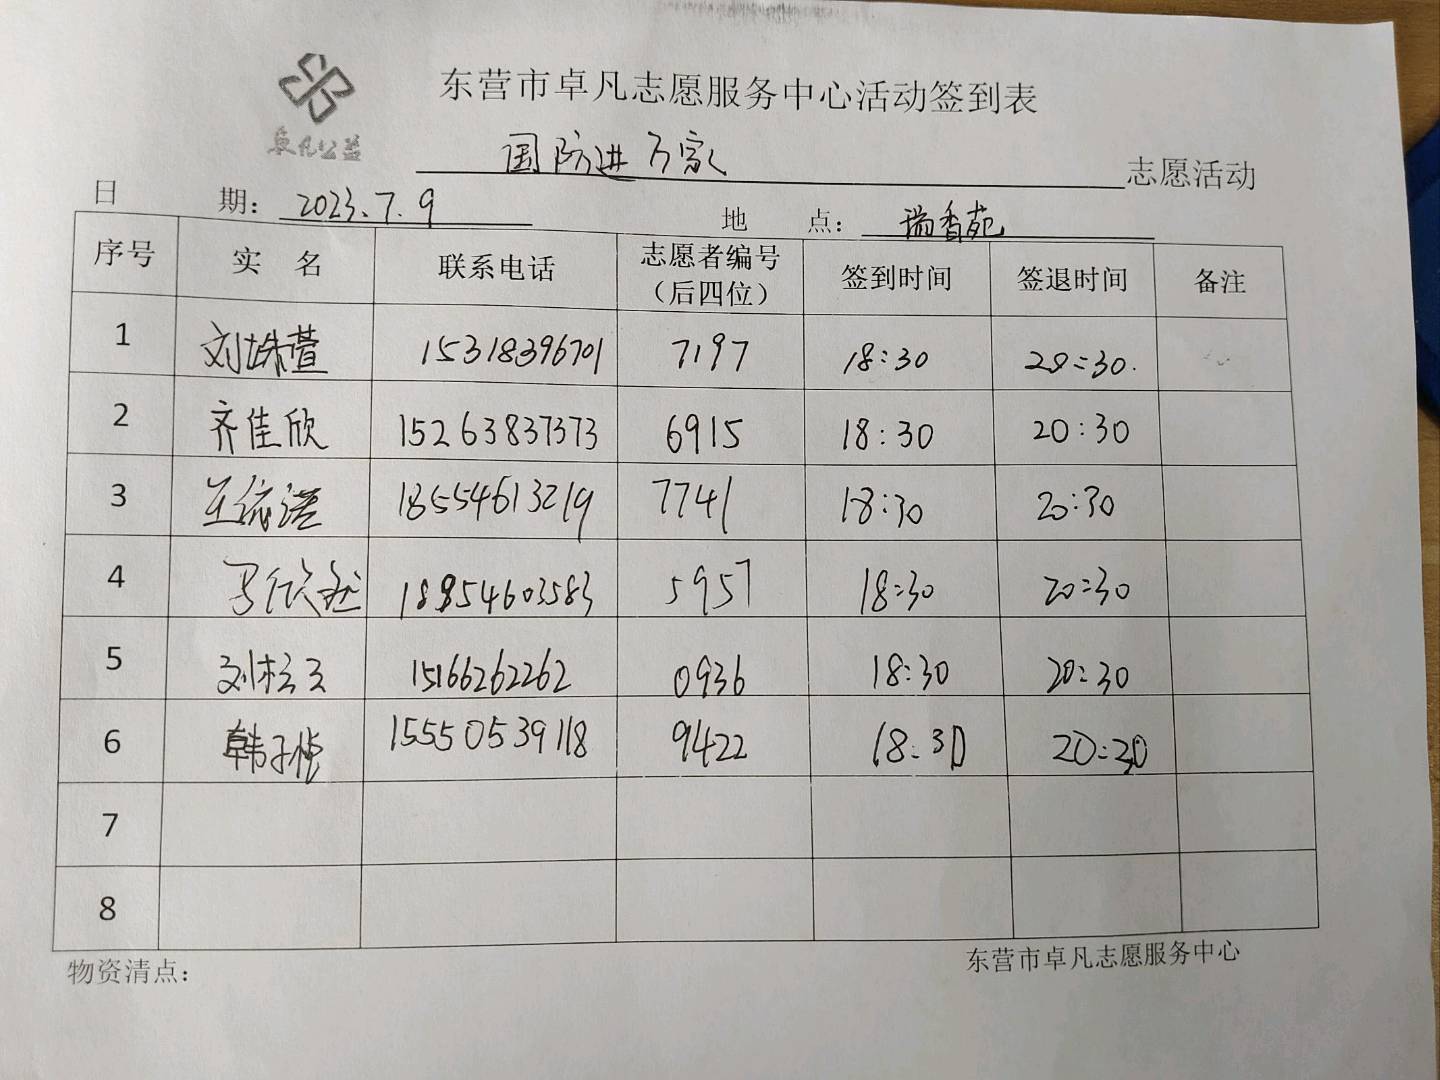 东营市卓凡志愿服务中心活动签到表
卓凡公益
国防进万家 志愿活动
日 期：2023.7.9 地 点：瑞香苑
序号 实 名 联系电话 志愿者编号（后四位） 签到时间 签退时间 备注
1 刘姝萱 15318396701 7197 18:30 20:30.
2 齐佳欣 15263837373 6915 18:30 20:30
3 王依诺 18554613219 7741 18:30 20:30
4 马欣 18954603583 5957 18:30 20:30
5 刘 15166262262 0936 18:30 20:30
6 韩子 15550539118 9422 18:30 20:30
7
8
物资清点： 东营市卓凡志愿服务中心